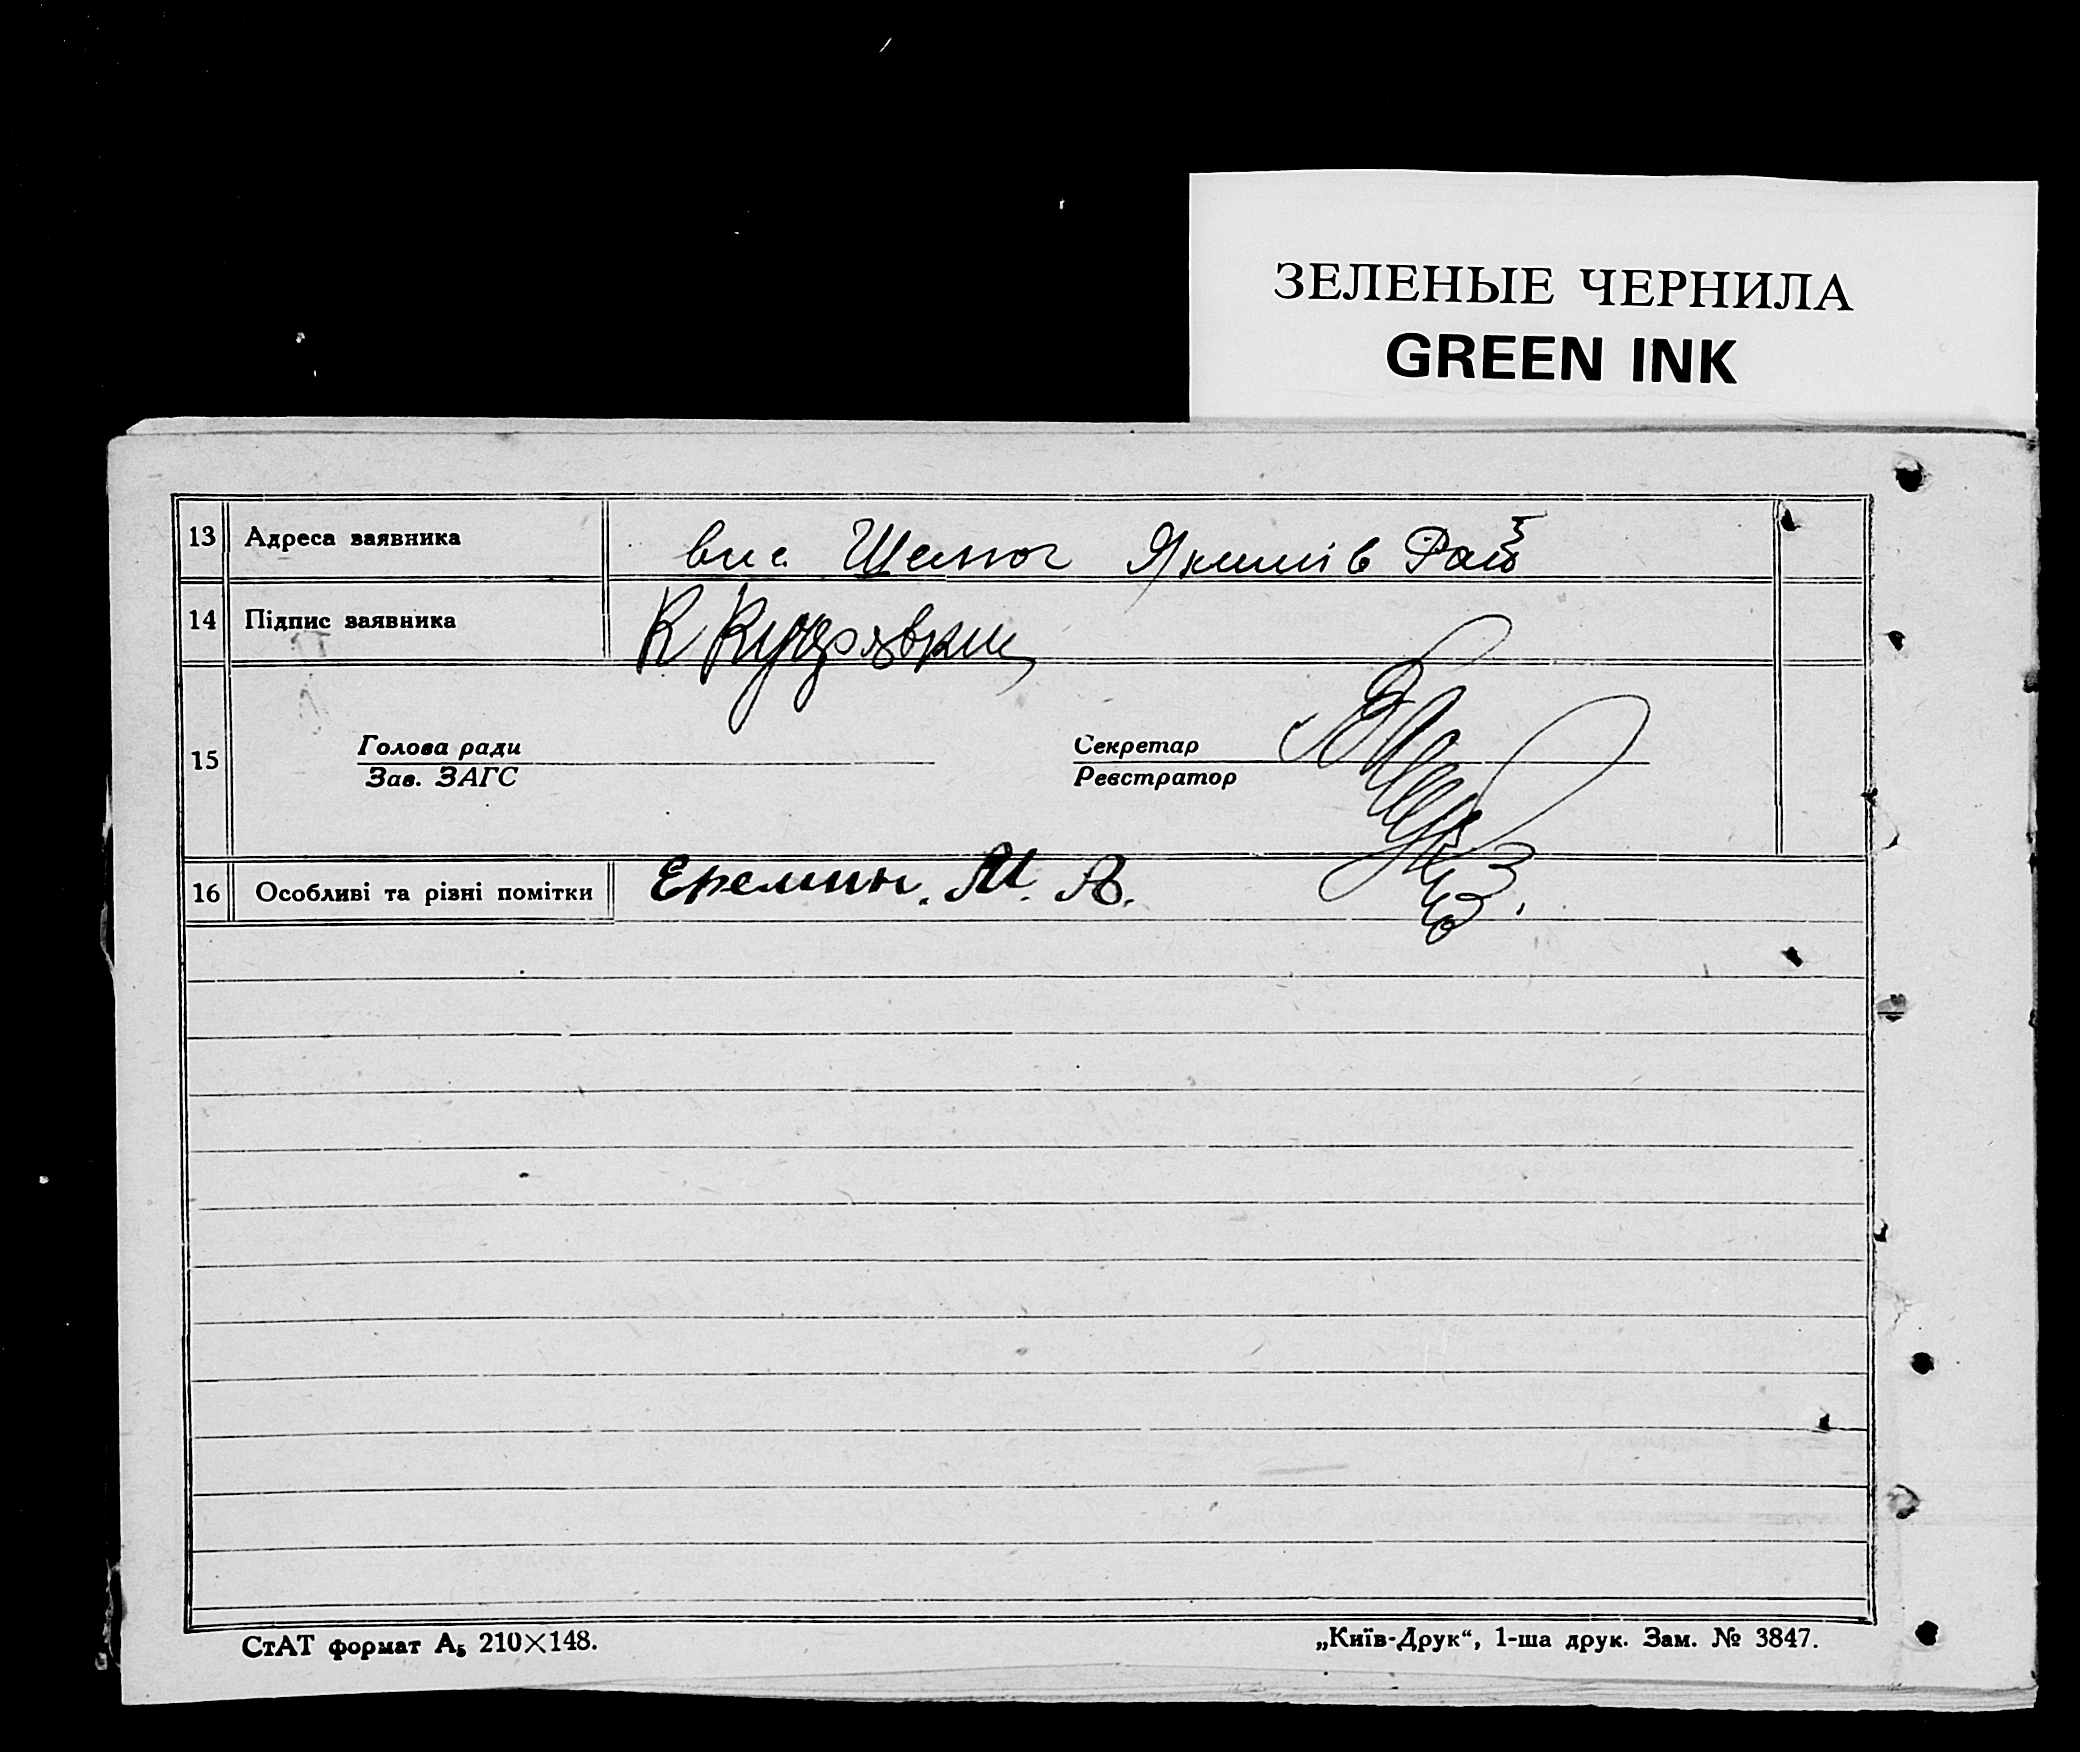 ЗЕЛЕНЫЕ ЧЕРНИЛА
GREEN INK
13 Адреса заявника вис. Якимів Рай
14 Підпис заявника К
15 Голова ради Секретар
Зав. ЗАГС Реєстратор
16 Особливі та різні помітки Еремин. М. А.
СтАТ формат А₅ 210×148. „Київ-Друк“, 1-ша друк. Зам. № 3847.